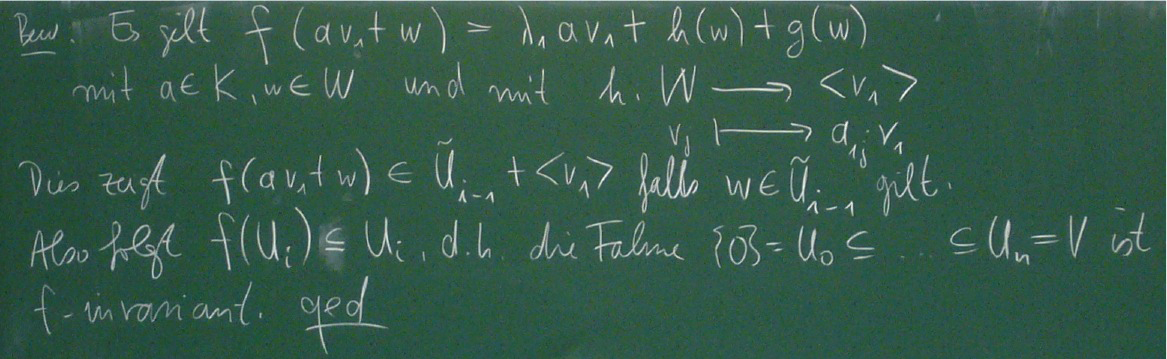 Bew. Es gilt f(av₁+w) = λ₁av₁ + h(w) + g(w)
mit a∈K, w∈W und mit h: W ⟶ <v₁>
vⱼ ⟼ a₁ⱼv₁
Dies zeigt f(av₁+w) ∈ Ũᵢ₋₁ + <v₁> falls w∈Ũᵢ₋₁ gilt.
Also folgt f(Uᵢ) ⊆ Uᵢ, d.h. die Fahne {0} = U₀ ⊆ ... ⊆ Uₙ = V ist
f-invariant. qed